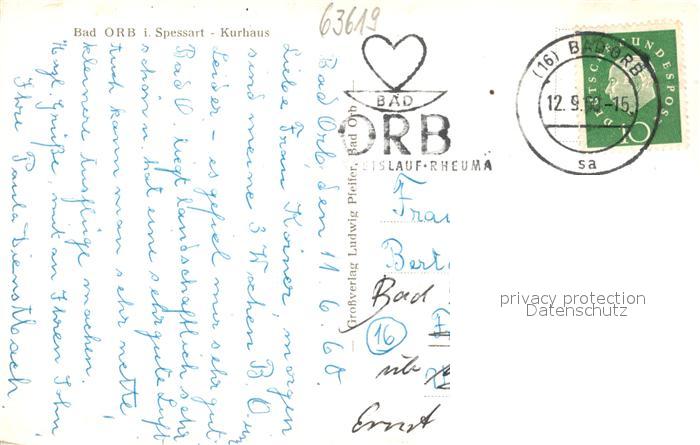 63619
Bad ORB i. Spessart - Kurhaus
BAD
ORB
EISLAUF·RHEUMA
(16) BAD ORB
12.9.60.-15
sa
DEUTSCHE BUNDESPOST
10
Bad Orb, den 11.6.60
Liebe Frau Koiner, morgen
sind meine 3 Wochen B.O. um
Leider - es gefiel mir sehr gut.
Bad O. liegt landschaftlich sehr
schön u. hat eine sehr gute Luft
auch kann man sehr nette,
kleinere Ausflüge machen.
Hzgl. Grüße, mit an Ihren Sohn
Ihre Paula Dienstbach
Großverlag Ludwig Pfeifer, Bad Orb
Frau
Berta
Bad
16
üb
Ernst
privacy protection
Datenschutz